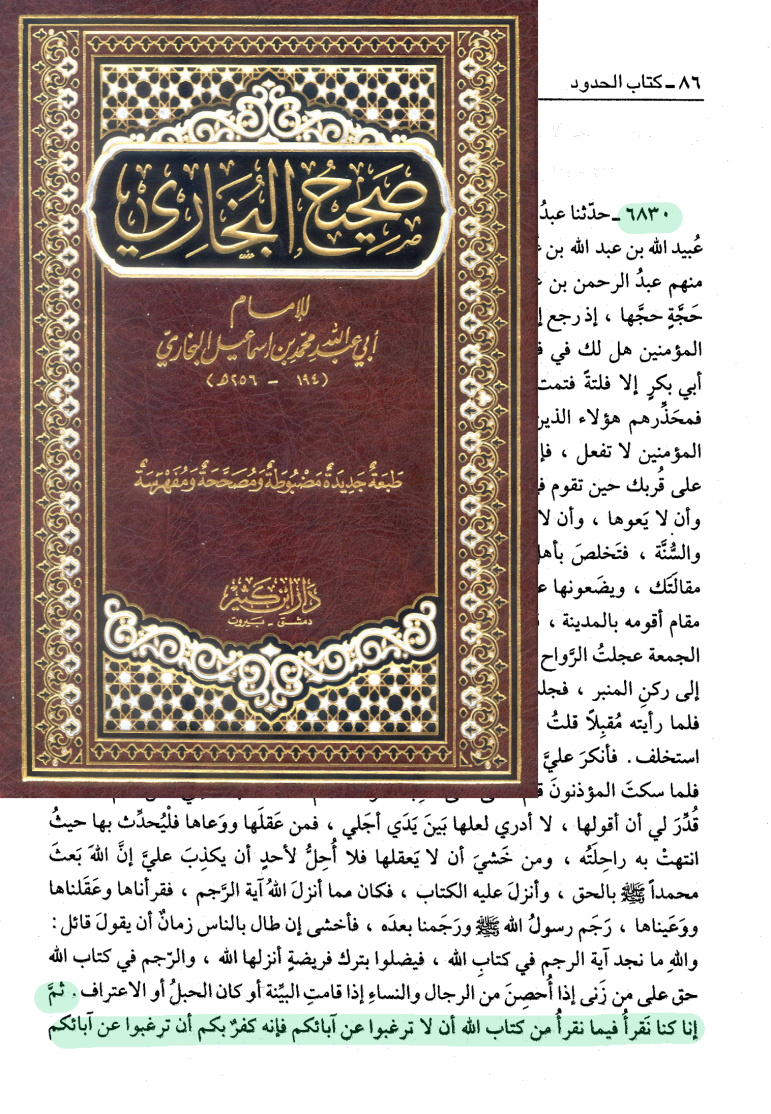 صَحِيحُ البُخَارِي
للإمام
أبي عبد الله محمد بن اسماعيل البخاري
(١٩٤ - ٢٥٦هـ)
طَبعَةٌ جَدِيدَةٌ مَضبُوطَةٌ وَمُصَحَّحَةٌ وَمُفَهرَسَةٌ
دَارُ ابن كَثِير
دمشق - بيروت
٨٦ - كتاب الحدود
٦٨٣٠ - حدّثنا عبدُ
عُبيد الله بن عبد الله بن
منهم عبدُ الرحمن بن
حَجَّةٍ حجَّها ، إذ رجع
المؤمنين هل لك في
أبي بكرٍ إلا فلتةً فتمت
فمحَذِّرهم هؤلاء الذين
المؤمنين لا تفعل ،
على قُربك حين تقوم
وأن لا يَعوها ، وأن لا
والسُّنَّة ، فتَخلصَ
مقالتَك ، ويضَعونها
مقام أقومه بالمدينة ،
الجمعة عجلتُ الرَّواح
إلى ركنِ المنبر ،
فلما رأيته مُقبِلاً قلتُ
استخلف . فأنكرَ عليَّ
فلما سكتَ المؤذنونَ
قُدِّرَ لي أن أقولها ، لا أدري لعلها بَينَ يَدَي أجَلي ، فمن عَقلَها ووَعاها فلْيُحدِّث بها حيثُ
انتهتْ به راحِلَتُه ، ومن خَشيَ أن لا يَعقلها فلا أُحِلُّ لأحدٍ أن يكذِبَ عليَّ إنَّ اللهَ بَعثَ
محمداً ﷺ بالحق ، وأنزلَ عليه الكتاب ، فكان مما أنزلَ اللهُ آية الرَّجم ، فقرأناها وعَقَلناها
ووَعَيناها ، رَجَم رسولُ الله ﷺ ورَجَمنا بعدَه ، فأخشى إن طال بالناس زمانٌ أن يقولَ قائل :
واللهِ ما نجد آيةَ الرجم في كتابِ الله ، فيضلوا بترك فريضةٍ أنزلها الله ، والرّجم في كتاب الله
حق على من زَنى إذا أُحصِنَ من الرجال والنساءِ إذا قامتِ البيِّنة أو كان الحبلُ أو الاعتراف . ثمَّ
إنا كنا نَقرأُ فيما نقرأُ من كتاب الله أن لا ترغبوا عن آبائكم فإنه كفرٌ بكم أن ترغبوا عن آبائكم